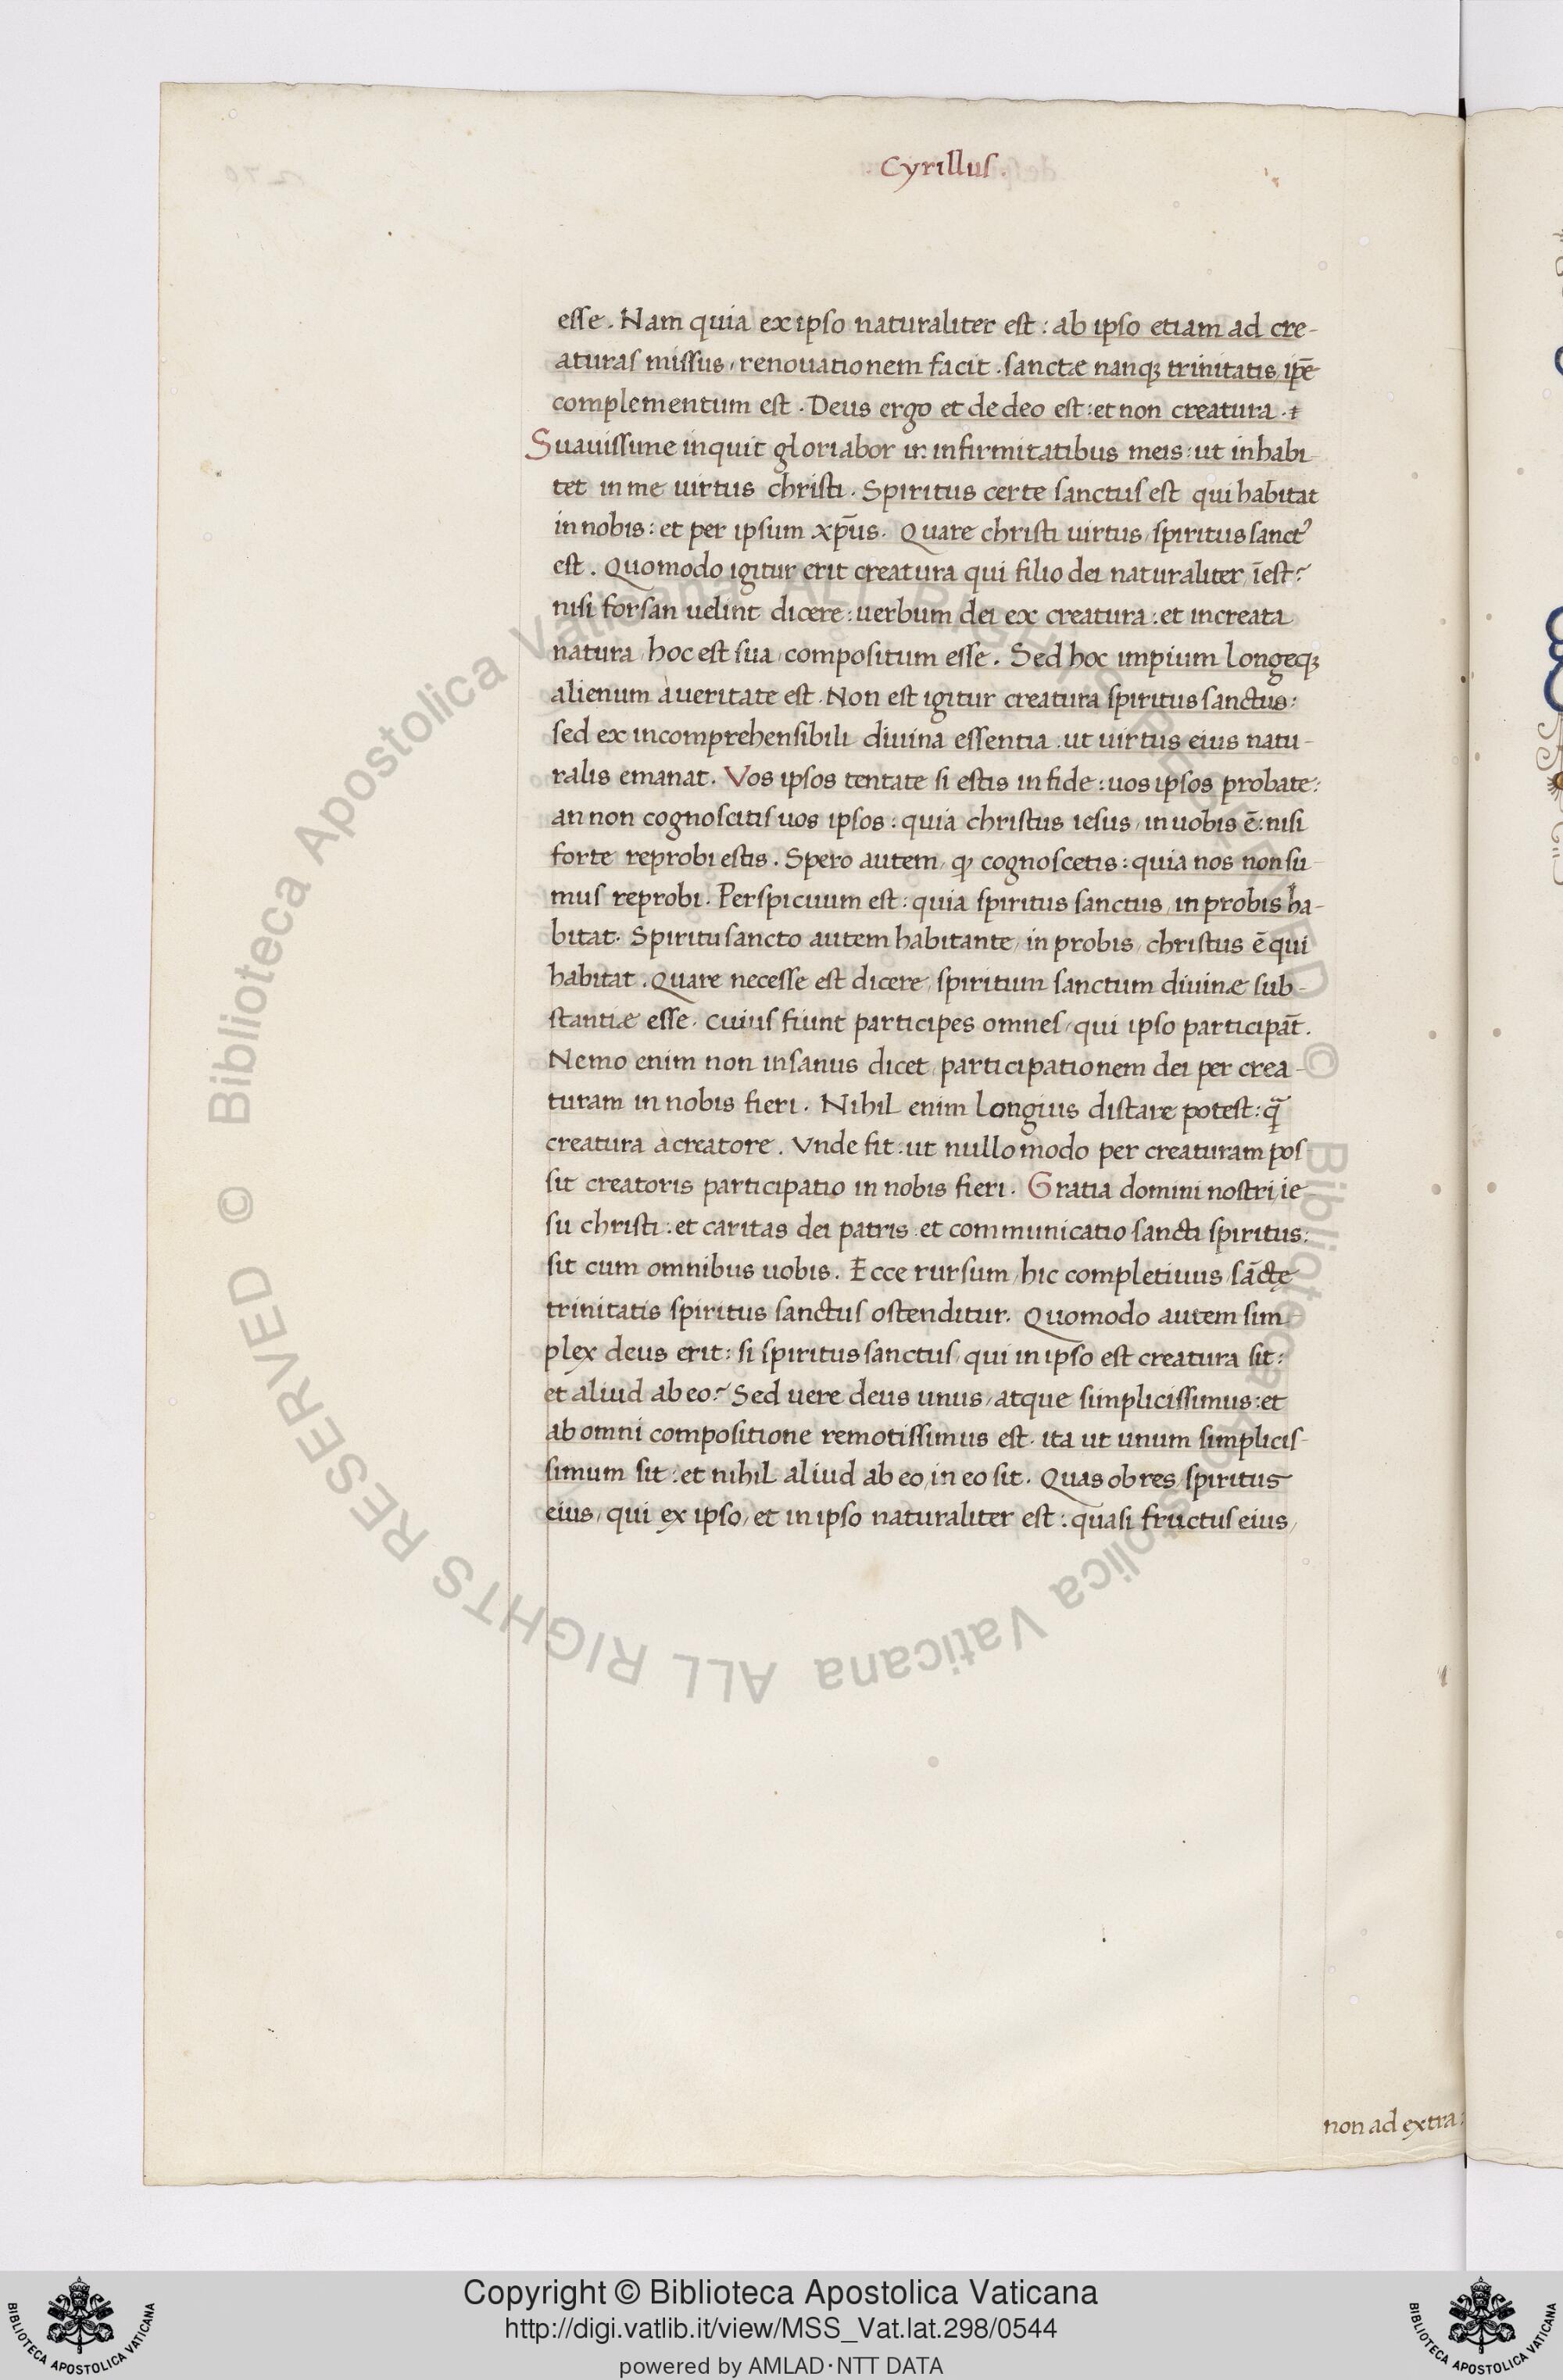 Cyrillus.
esse. Nam quia ex ipso naturaliter est: ab ipso etiam ad cre-
aturas missus, renouationem facit. sanctæ nanqꝫ trinitatis, ip̄e
complementum est. Deus ergo et de deo est: et non creatura.
Suauissime inquit gloriabor in infirmitatibus meis: ut inhabi-
tet in me uirtus christi. Spiritus certe sanctus est qui habitat
in nobis: et per ipsum xp̄us. Quare christi uirtus, spiritus sanctꝰ
est. Quomodo igitur erit creatura qui filio dei naturaliter, īest?
nisi forsan uelint dicere: uerbum dei ex creatura: et increata
natura, hoc est sua, compositum esse. Sed hoc impium longeqꝫ
alienum à ueritate est. Non est igitur creatura spiritus sanctus:
sed ex incomprehensibili diuina essentia. ut uirtus eius natu-
ralis emanat. Vos ipsos tentate si estis in fide: uos ipsos probate:
an non cognoscitis uos ipsos: quia christus iesus, in uobis ē: nisi
forte reprobi estis. Spero autem, ꝙ cognoscetis: quia nos non su-
mus reprobi. Perspicuum est: quia spiritus sanctus, in probis ha-
bitat. Spiritu sancto autem habitante, in probis, christus ē qui
habitat. Quare necesse est dicere, spiritum sanctum diuinæ sub-
stantiæ esse. cuius fiunt participes omnes, qui ipso participāt.
Nemo enim non insanus dicet, participationem dei per crea-
turam in nobis fieri. Nihil enim longius distare potest: q̄
creatura à creatore. Vnde fit: ut nullo modo per creaturam pos-
sit creatoris participatio in nobis fieri. Gratia domini nostri, ie-
su christi: et caritas dei patris et communicatio sancti spiritus:
sit cum omnibus uobis. Ecce rursum, hic completiuus, sāctę
trinitatis spiritus sanctus ostenditur. Quomodo autem sim-
plex deus erit: si spiritus sanctus, qui in ipso est creatura sit:
et aliud ab eo? Sed uere deus unus, atque simplicissimus: et
ab omni compositione remotissimus est. ita ut unum simplicis-
simum sit: et nihil aliud ab eo, in eo sit. Quas ob res, spiritus
eius, qui ex ipso, et in ipso naturaliter est: quasi fructus eius,
non ad extra:
© Biblioteca Apostolica Vaticana ALL RIGHTS RESERVED © Biblioteca Apostolica Vaticana ALL RIGHTS RESERVED
Copyright © Biblioteca Apostolica Vaticana
http://digi.vatlib.it/view/MSS_Vat.lat.298/0544
powered by AMLAD·NTT DATA
BIBLIOTECA APOSTOLICA VATICANA
BIBLIOTECA APOSTOLICA VATICANA